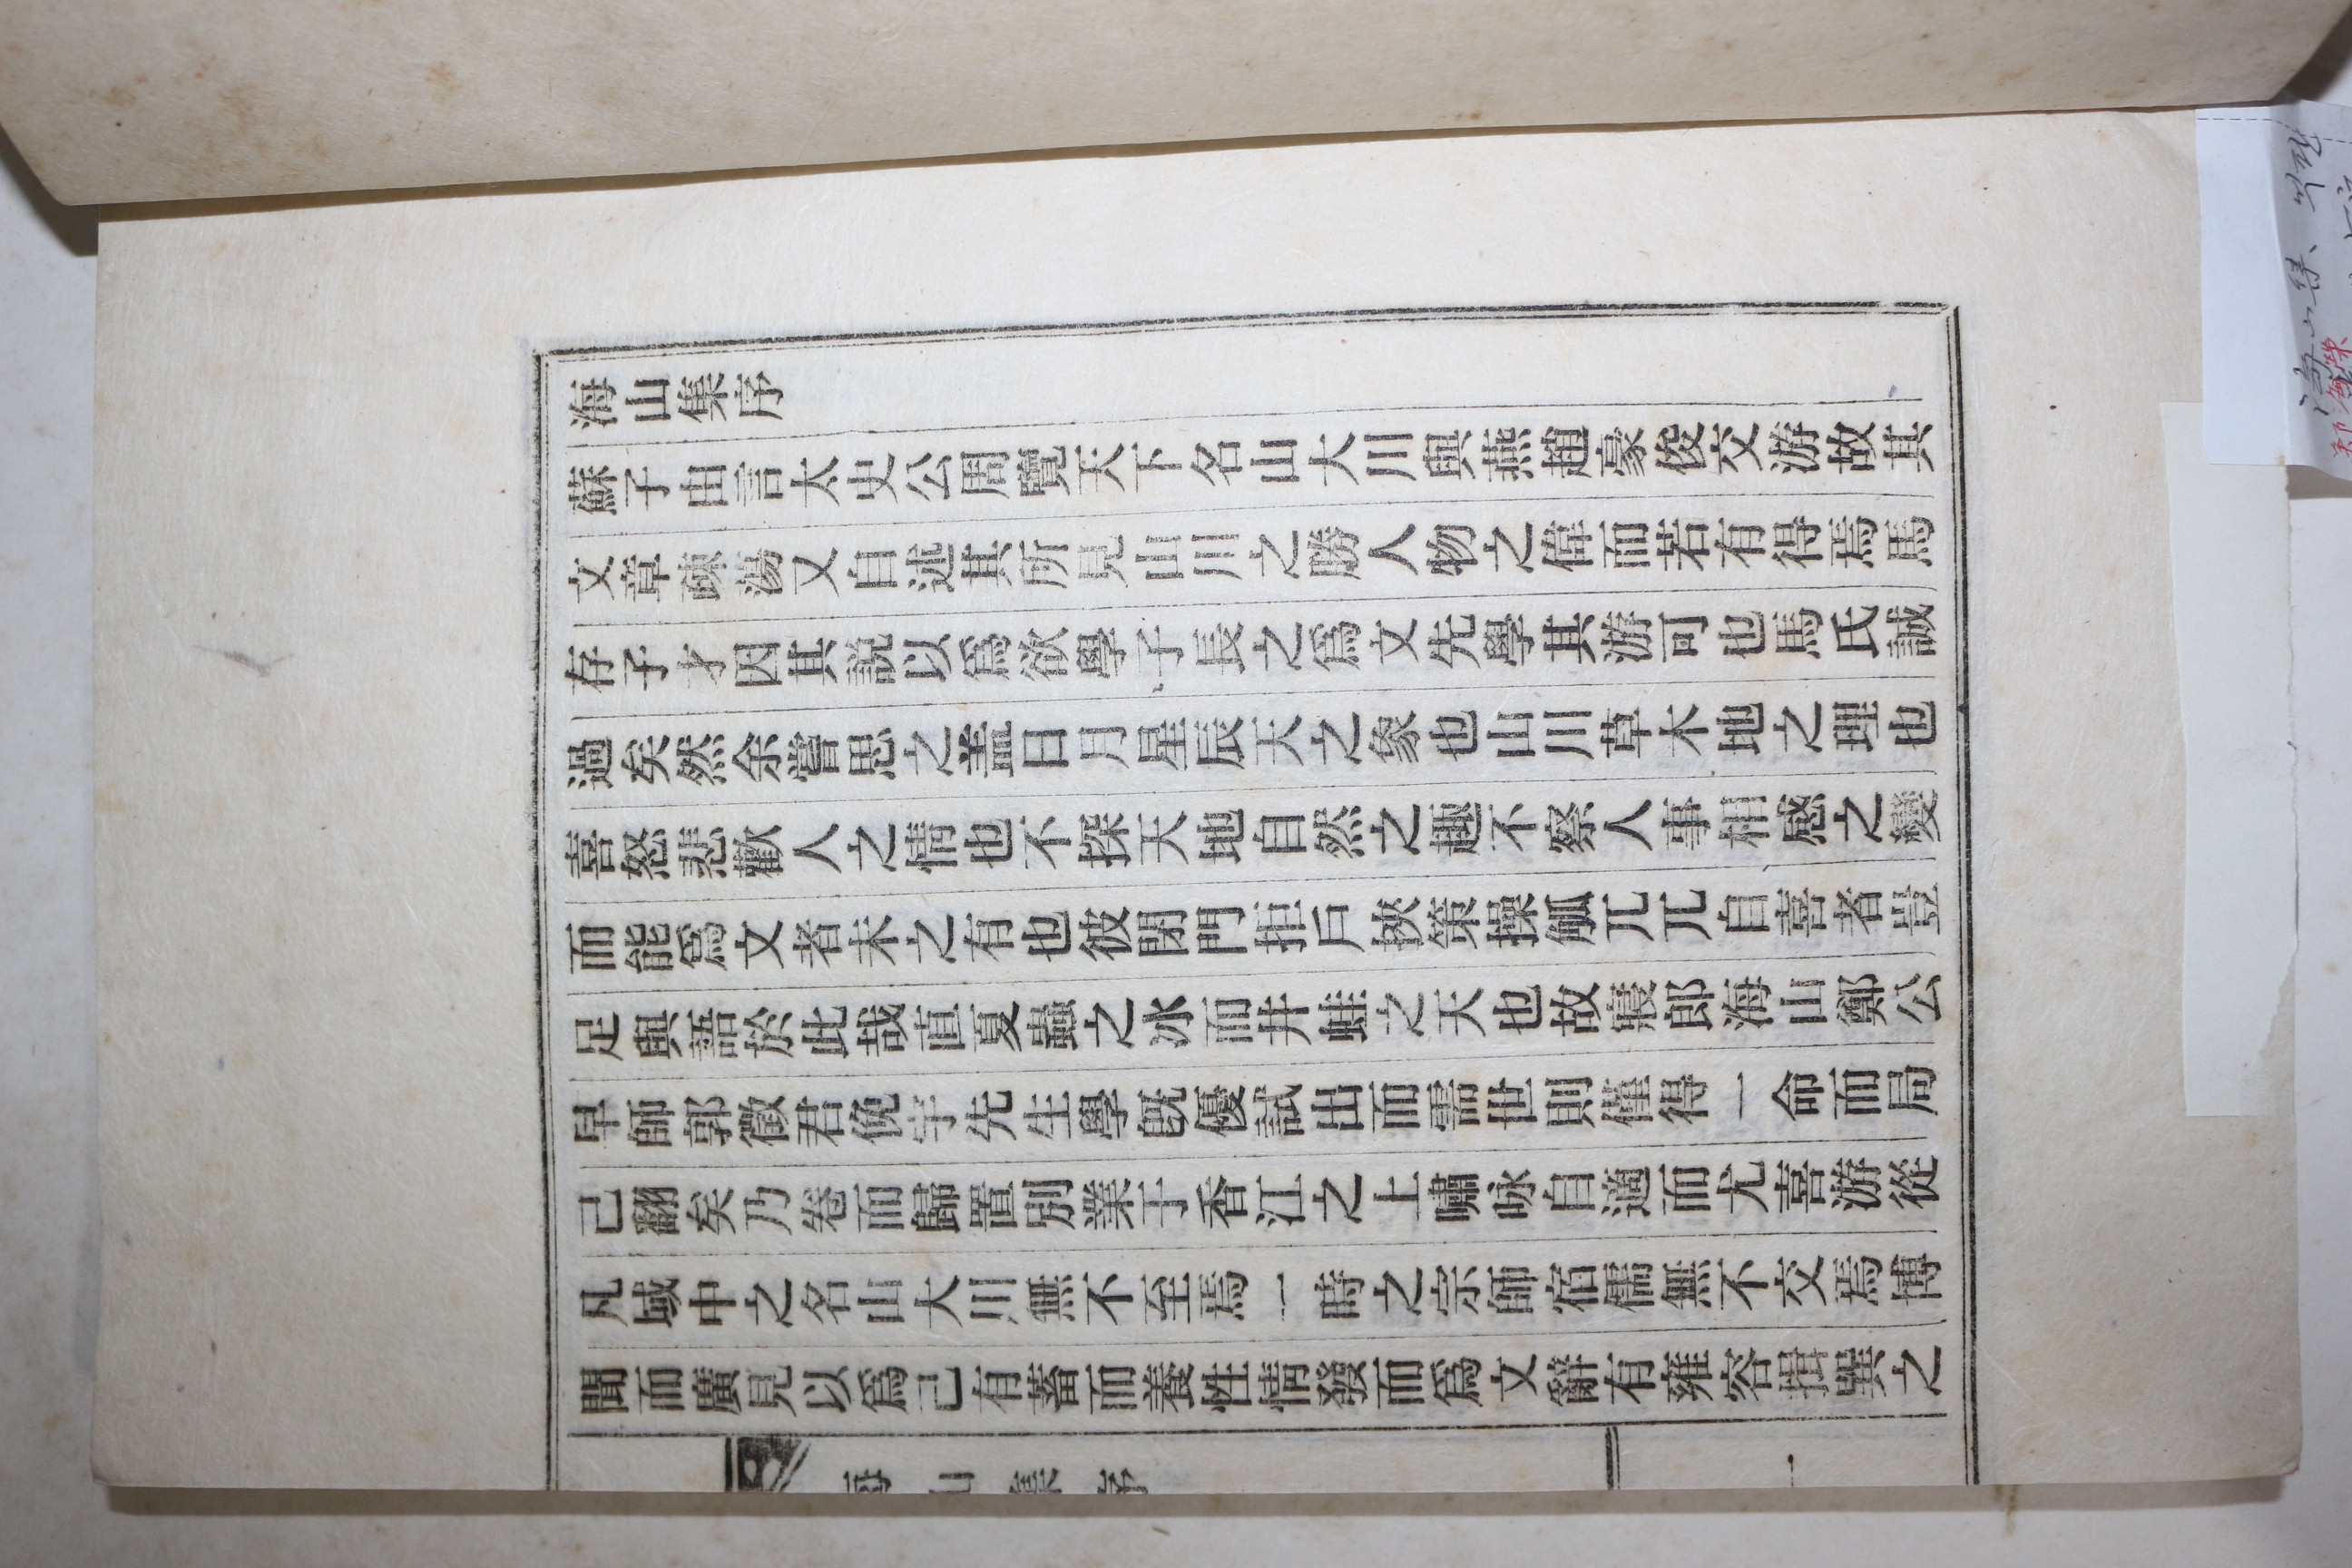 海山集序
蘇子由言太史公周覽天下名山大川與燕趙豪俊交游故其
文章疎蕩又自述其所見山川之勝人物之偉而若有得焉馬
存子才因其説以爲欲學子長之爲文先學其游可也馬氏誠
過矣然余嘗思之盖日月星辰天之象也山川草木地之理也
喜怒悲歡人之情也不探天地自然之趣不察人事相感之變
而能爲文者未之有也彼閉門拒戶挾策操觚兀兀自喜者豈
足與語於此哉直夏蟲之冰而井蛙之天也故寢郎海山鄭公
早師郭徵君俛宇先生學旣優試出而需世則僅得一命而局
己翻矣乃卷而歸置別業于香江之上嘯咏自適而尤喜游從
凡域中之名山大川無不至焉一時之宗師宿儒無不交焉博
聞而廣見以爲己有蓄而養性情發而爲文辭有雍容揖巽之
海山集序
一
海山集
鄭海榮